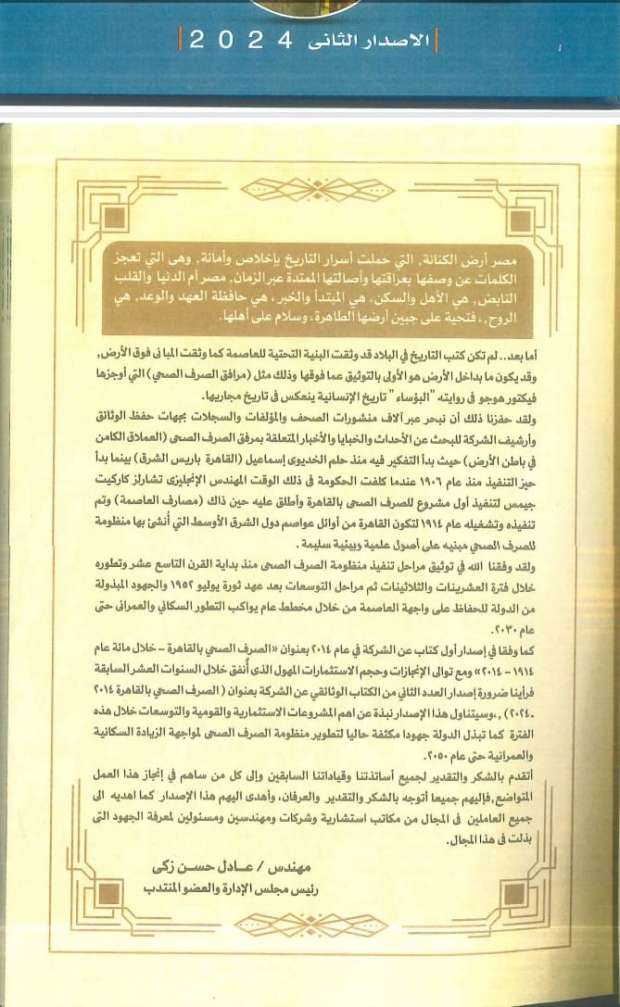 الاصدار الثانى 2024
مصر أرض الكنانة، التي حملت أسرار التاريخ بإخلاص وأمانة، وهى التي تعجز
الكلمات عن وصفها بعراقتها وأصالتها الممتدة عبر الزمان، مصر أم الدنيا والقلب
النابض، هي الأهل والسكن، هي المبتدأ والخبر، هي حافظة العهد والوعد، هي
الروح،، فتحية على جبين أرضها الطاهرة، وسلام على أهلها.
أما بعد.. لم تكن كتب التاريخ في البلاد قد وثقت البنية التحتية للعاصمة كما وثقت المبانى فوق الأرض،
وقد يكون ما بداخل الأرض هو الأولى بالتوثيق عما فوقها وذلك مثل (مرافق الصرف الصحي) التي أوجزها
فيكتور هوجو فى روايته "البؤساء" تاريخ الإنسانية ينعكس فى تاريخ مجاريها.
ولقد حفزنا ذلك أن نبحر عبر آلاف منشورات الصحف والمؤلفات والسجلات بجهات حفظ الوثائق
وأرشيف الشركة للبحث عن الأحداث والخبايا والأخبار المتعلقة بمرفق الصرف الصحى (العملاق الكامن
في باطن الأرض) حيث بدأ التفكير فيه منذ حلم الخديوى إسماعيل (القاهرة باريس الشرق) بينما بدأ
حيز التنفيذ منذ عام ١٩٠٦ عندما كلفت الحكومة فى ذلك الوقت المهندس الإنجليزى تشارلز كاركيت
جيمس لتنفيذ أول مشروع للصرف الصحى بالقاهرة وأطلق عليه حين ذاك (مصارف العاصمة) وتم
تنفيذه وتشغيله عام ١٩١٤ لتكون القاهرة من أوائل عواصم دول الشرق الأوسط التي أُنشئ بها منظومة
للصرف الصحي مبنيه على أصول علمية وبيئية سليمة .
ولقد وفقنا الله في توثيق مراحل تنفيذ منظومة الصرف الصحى منذ بداية القرن التاسع عشر وتطوره
خلال فترة العشرينات والثلاثينات ثم مراحل التوسعات بعد عهد ثورة يوليو ١٩٥٢ والجهود المبذولة
من الدولة للحفاظ على واجهة العاصمة من خلال مخطط عام يواكب التطور السكاني والعمرانى حتى
عام ٢٠٣٠.
كما وفقنا في إصدار أول كتاب عن الشركة في عام ٢٠١٤ بعنوان «الصرف الصحي بالقاهرة - خلال مائة عام
١٩١٤ - ٢٠١٤» ومع توالى الإنجازات وحجم الاستثمارات المهول الذى أُنفق خلال السنوات العشر السابقة
فرأينا ضرورة إصدار العدد الثاني من الكتاب الوثائقي عن الشركة بعنوان ( الصرف الصحي بالقاهرة ٢٠١٤
-٢٠٢٤) ,،وسيتناول هذا الإصدار نبذة عن اهم المشروعات الاستثمارية والقومية والتوسعات خلال هذه
الفترة كما تبذل الدولة جهودا مكثفة حاليا لتطوير منظومة الصرف الصحى لمواجهة الزيادة السكانية
والعمرانية حتى عام ٢٠٥٠.
أتقدم بالشكر والتقدير لجميع أساتذتنا وقياداتنا السابقين وإلى كل من ساهم في إنجاز هذا العمل
المتواضع,فإليهم جميعا أتوجه بالشكر والتقدير والعرفان، وأهدى اليهم هذا الإصدار كما اهديه الى
جميع العاملين فى المجال من مكاتب استشارية وشركات ومهندسين ومسئولين لمعرفة الجهود التى
بذلت فى هذا المجال.
مهندس / عـادل حسـن زكى
رئيس مجلس الإدارة والعضو المنتدب